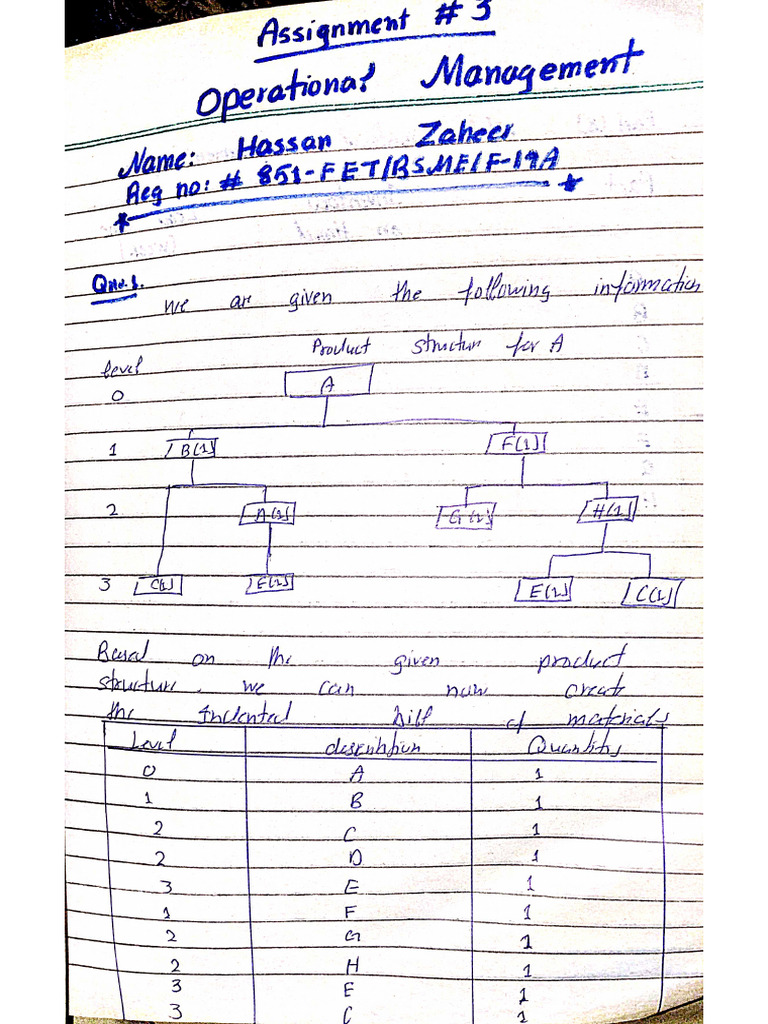 Assignment # 3
Operational Management
Name: Hassan Zaheer
Reg no: # 851-FET/BSME/F-19A
QNo.1.
we are given the following information
Product structur for A
level
0 A
1 B(1) F(1)
2 D(1) G(1) H(1)
3 C(1) E(1) E(1) C(1)
Based on the given product
structure. we can now create
the Indented Bill of materials
Level description Quantity
0 A 1
1 B 1
2 C 1
2 D 1
3 E 1
1 F 1
2 G 1
2 H 1
3 E 1
3 C 1